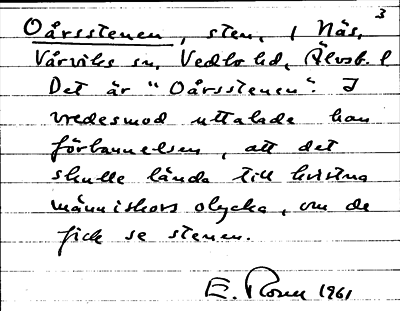 3
Oårsstenen, sten, i Näs,
Vårviks sn, Vedbo hd, Älvsb. l
Det är "Oårsstenen". I
vredesmod uttalade han
förbannelsen, att det
skulle lända till kristna
människors olycka, om de
fick se stenen.
E. Rosen 1961